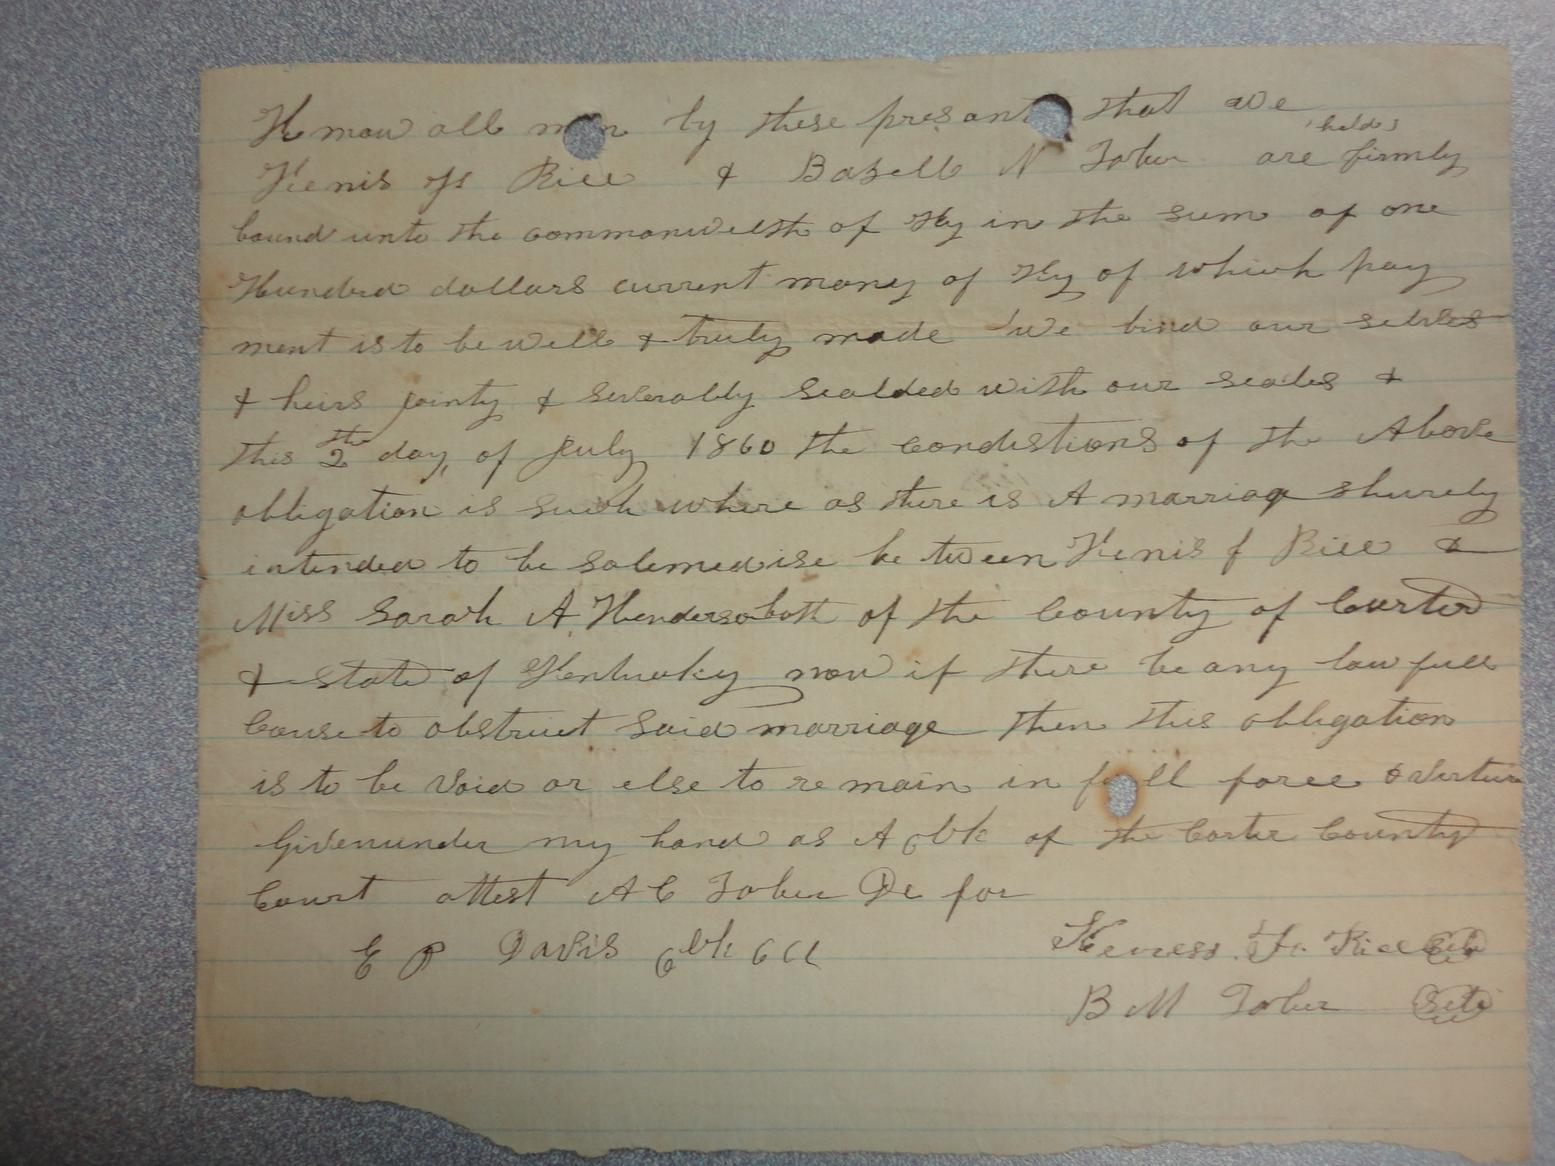 Know all men by these presants that we
held
Kenis F Rice & Bazell N Tabur are firmly
bound unto the commonwelth of Ky in the sum of one
Hundred dollars current mony of Ky of which pay
ment is to be well & truly made we bind our selves
& heirs jointy & severably sealded with our seales &
this 2th day of July 1860 the condistions of the Above
obligation is such where as there is A marriage shurely
intended to be solemedise be tween Kenis f Rice &
Miss Sarah A. Hendersobott of the County of Carter
& state of Kentucky now if there be any law full
Cause to obstruct said marriage then this obligation
is to be void or else to re main in full force & verture
Given under my hand as A Clk of the Carter County
Court attest A C Tabur Dc for
E P Davis Clk C C C
Keness. F. Rice
B M Tabur